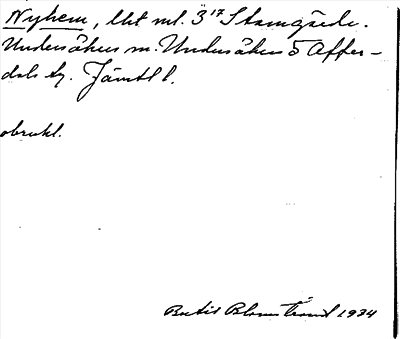 Nyhem, lht ml. 3¹⁷ Stamgärde.
Undersåkers sn. Undersåkers o Offer-
dals tg. Jämtl l.
obrukl.
Bertil Blomstrand 1934